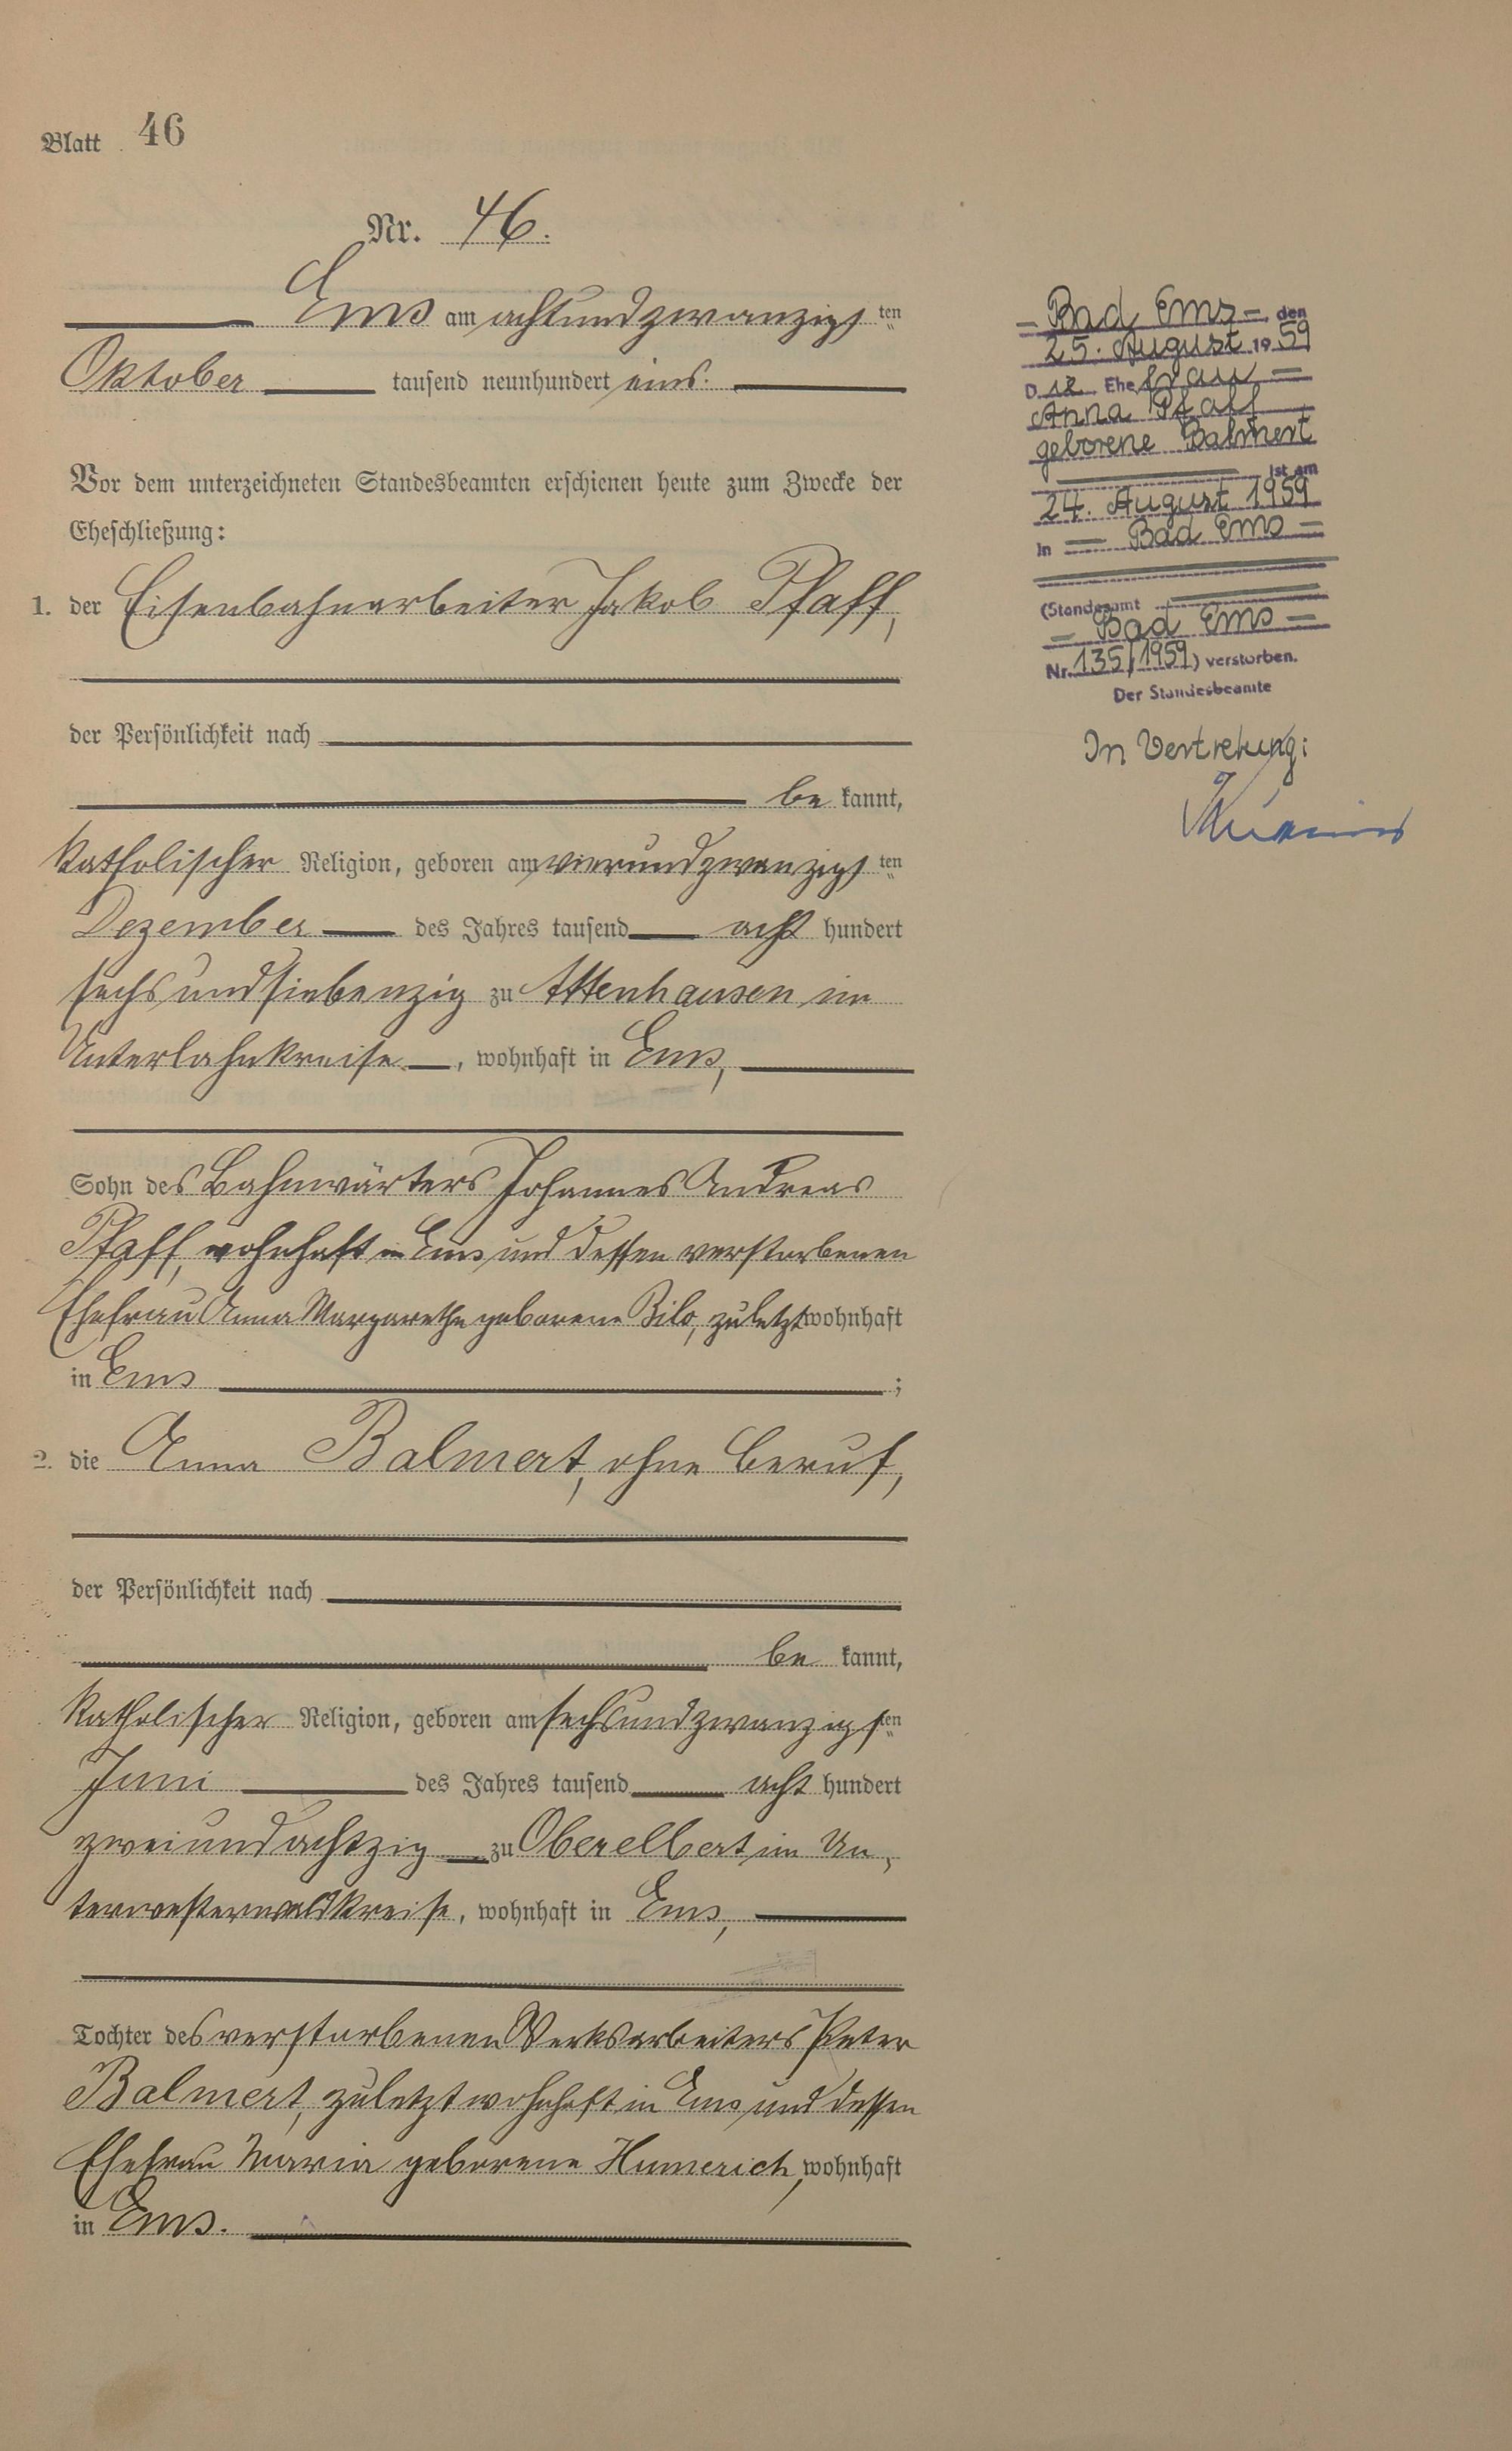 Blatt 46
Nr. 46.
Ems am achtundzwanzigsten
Oktober tausend neunhundert eins.
Vor dem unterzeichneten Standesbeamten erschienen heute zum Zwecke der
Eheschließung:
1. der Eisenbahnarbeiter Jakob Pfaff,
der Persönlichkeit nach
be kannt,
katholischer Religion, geboren am vierundzwanzigsten
Dezember des Jahres tausend acht hundert
sechsundsiebenzig zu Attenhausen im
Unterlahnkreise, wohnhaft in Ems,
Sohn des Bahnwärters Johannes Andreas
Pfaff, wohnhaft in Ems und dessen verstorbenen
Ehefrau Anna Margarethe geborene Bilo, zuletzt wohnhaft
in Ems ;
2. die Anna Balmert, ohne Beruf,
der Persönlichkeit nach
be kannt,
katholischer Religion, geboren am sechsundzwanzigsten
Juni des Jahres tausend acht hundert
zweiundachtzig zu Oberelbert im Un-
terwesterwaldkreise, wohnhaft in Ems,
Tochter des verstorbenen Werksarbeiters Peter
Balmert, zuletzt wohnhaft in Ems und dessen
Ehefrau Maria geborene Humerich, wohnhaft
in Ems.
= Bad Ems =, den
25. August 1959
Die Ehefrau =
Anna Pfaff
geborene Balmert
ist am
24. August 1959
in = Bad Ems =
(Standesamt
= Bad Ems =
Nr. 135/1959) verstorben.
Der Standesbeamte
In Vertretung: